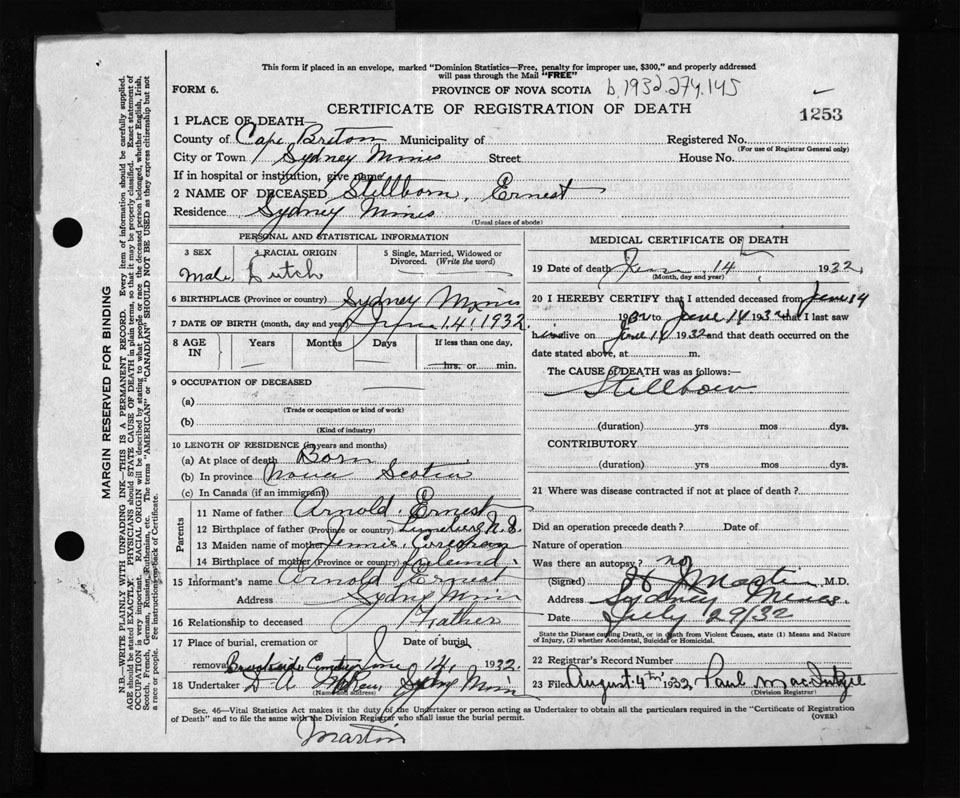 This form if placed in an envelope, marked "Dominion Statistics—Free, penalty for improper use, $300," and properly addressed
will pass through the Mail "FREE"
FORM 6.
PROVINCE OF NOVA SCOTIA b.1932.274.145
CERTIFICATE OF REGISTRATION OF DEATH
1253
1 PLACE OF DEATH
County of Cape Breton Municipality of
Registered No.
(For use of Registrar General only)
City or Town Sydney Mines Street House No.
If in hospital or institution, give name
2 NAME OF DECEASED Stillborn, Ernest
Residence Sydney Mines
(Usual place of abode)
PERSONAL AND STATISTICAL INFORMATION
3 SEX
Male
4 RACIAL ORIGIN
Dutch
5 Single, Married, Widowed or
Divorced. (Write the word)
6 BIRTHPLACE (Province or country) Sydney Mines
7 DATE OF BIRTH (month, day and year) June 14, 1932
8 AGE
IN
Years Months Days If less than one day,
hrs. or min.
9 OCCUPATION OF DECEASED
(a)
(Trade or occupation or kind of work)
(b)
(Kind of industry)
10 LENGTH OF RESIDENCE (in years and months)
(a) At place of death Born
(b) In province Nova Scotia
(c) In Canada (if an immigrant)
Parents
11 Name of father Arnold Ernest
12 Birthplace of father (Province or country) N.S.
13 Maiden name of mother Jennie
14 Birthplace of mother (Province or country)
15 Informant's name Arnold Ernest
Address Sydney Mines
16 Relationship to deceased Father
17 Place of burial, cremation or Date of burial
removal Brookside Cemetery June 14, 1932.
18 Undertaker D A Sydney Mines
(Name and address)
MEDICAL CERTIFICATE OF DEATH
19 Date of death June 14, 1932
(Month, day and year)
20 I HEREBY CERTIFY that I attended deceased from June 14
1932 to June 14 1932 that I last saw
him alive on June 14 1932 and that death occurred on the
date stated above, at m.
The CAUSE of DEATH was as follows:—
Stillborn
(duration) yrs mos dys.
CONTRIBUTORY
(duration) yrs mos dys.
21 Where was disease contracted if not at place of death?
Did an operation precede death? Date of
Nature of operation
Was there an autopsy? no
(Signed) Martin M.D.
Address Sydney Mines.
Date July 29/32
State the Disease causing Death, or in death from Violent Causes, state (1) Means and Nature
of Injury, (2) whether Accidental, Suicidal or Homicidal.
22 Registrar's Record Number
23 Filed August 4th 1932 Paul
(Division Registrar)
Sec. 46—Vital Statistics Act makes it the duty of the Undertaker or person acting as Undertaker to obtain all the particulars required in the "Certificate of Registration
of Death" and to file the same with the Division Registrar who shall issue the burial permit.
(OVER)
Martin
MARGIN RESERVED FOR BINDING
N.B.—WRITE PLAINLY WITH UNFADING INK—THIS IS A PERMANENT RECORD. Every item of information should be carefully supplied.
AGE should be stated EXACTLY. PHYSICIANS should STATE CAUSE OF DEATH in plain terms, so that it may be properly classified. Exact statement of
OCCUPATION is very important. RACIAL ORIGIN will be described by stating to what people or race the deceased person belonged, whether English, Irish,
Scotch, French, German, Russian, Ruthenian, etc. The terms "AMERICAN" or "CANADIAN" SHOULD NOT BE USED as they express citizenship but not
a race or people. See instructions on back of Certificate.